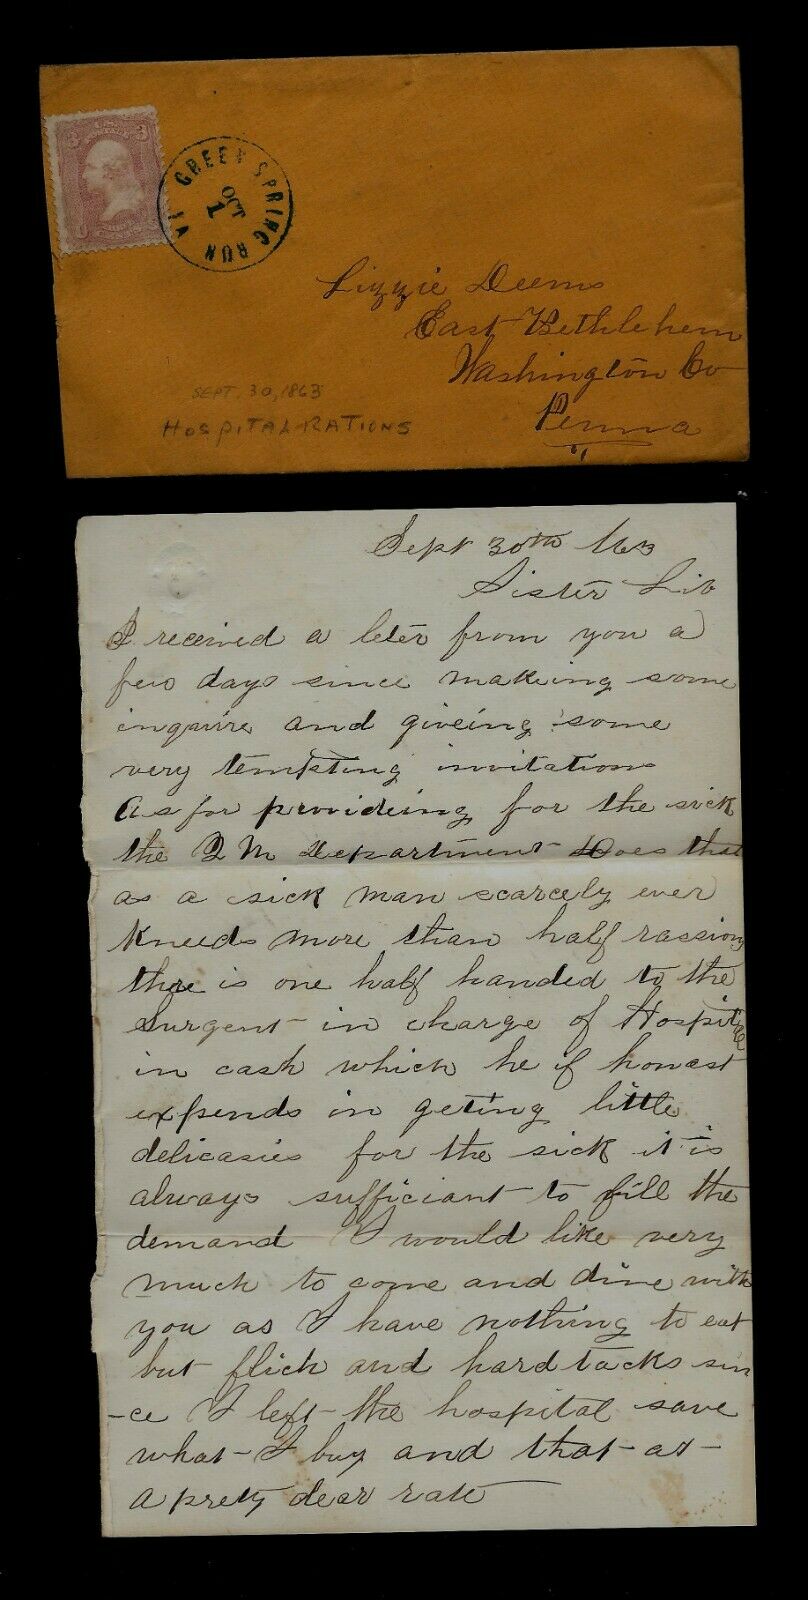 U.S.
3 3
GREEN SPRING RUN VA
OCT
1
Lizzie Deems
East Bethlehem
Washington Co
Penna
SEPT. 30, 1863
HOSPITAL RATIONS
Sept 30th /63
Sister Lib
I received a leter from you a
few days since makeing some
inquire and giveing some
very tempting invitations
As for provideing for the sick
the Q M Department Does that
as a sick man scarcely ever
Kneeds more than half rassions
thre is one half handed to the
Surgent in charge of Hospital
in cash which he if honest
expends in geting little
delicasies for the sick it is
always sufficiant to fill the
demand I would like very
much to come and dine with
you as I have nothing to eat
but flich and hard tacks sin
-ce I left the hospital save
what I buy and that at
a prety dear rate